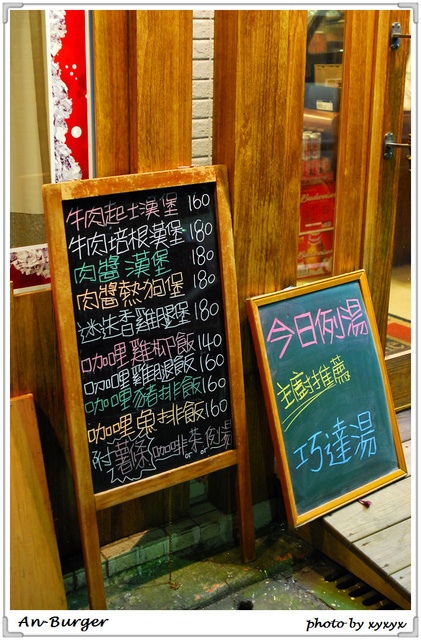 牛肉起士漢堡 160
牛肉培根漢堡 180
肉醬漢堡 180
肉醬熱狗堡 180
迷迭香雞腿堡 180
咖哩雞松飯 140
咖哩雞腿飯 160
咖哩豬排飯 160
咖哩魚排飯 160
附薯條 咖啡or茶or例湯
今日例湯
主廚推薦
巧達湯
Budweiser
An-Burger
photo by xyxyx